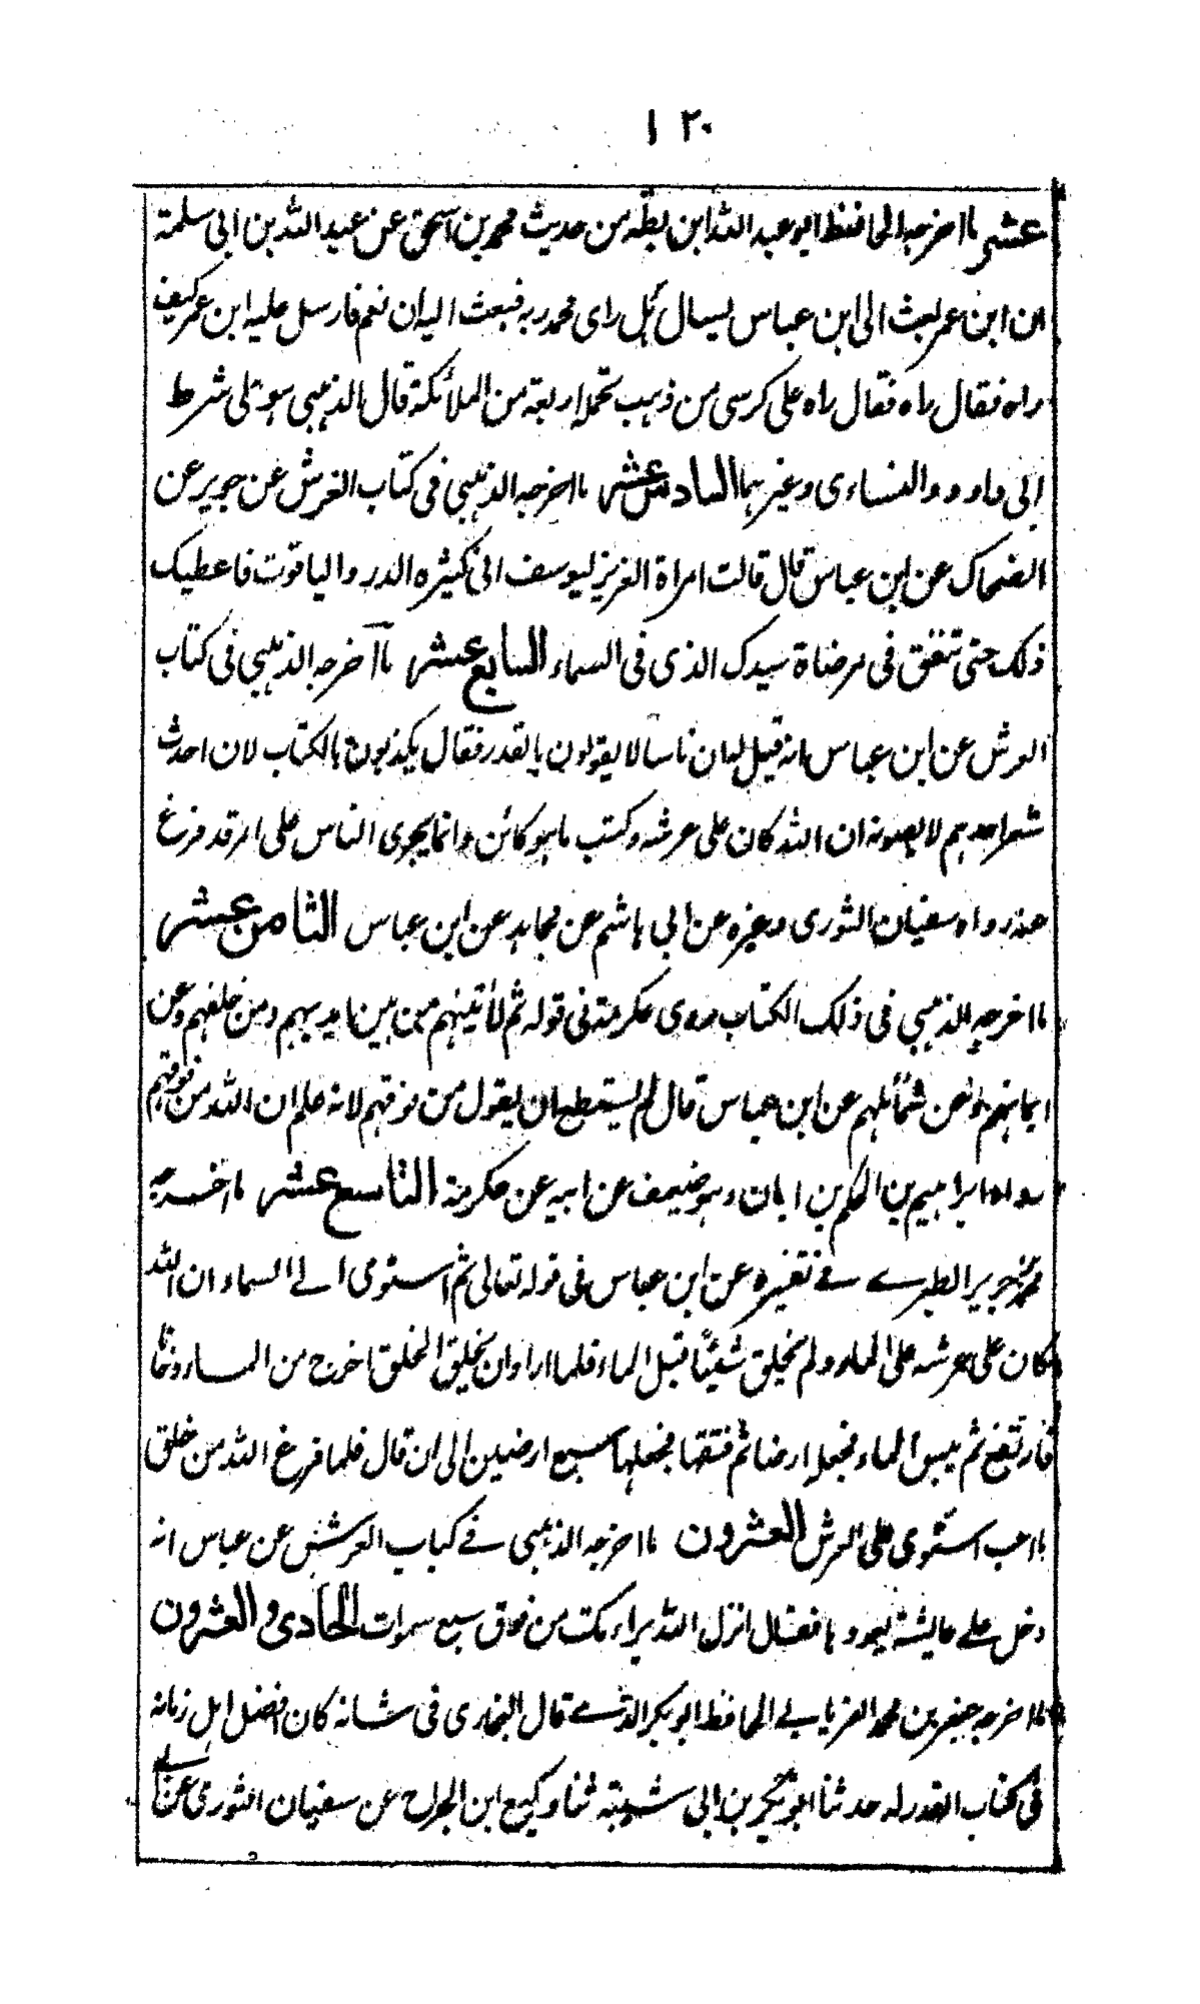 ١٢٠
عشر ما اخرجه الحافظ ابو عبد الله ابن بطه من حديث محمد بن اسحق عن عبد الله بن ابي سلمة
ان ابن عمر بعث الى ابن عباس يسال هل راى محمد ربه فبعث اليه ان نعم فارسل عليه ابن عمر كيف
راه فقال راه فقال راه على كرسى من ذهب تحمله اربعة من الملائكة قال الذهبى هو على شرط
ابى داود والنساءى وغيرهما السادس عشر ما اخرجه الذهبي في كتاب العرش عن جوير عن
الضحاك عن ابن عباس قال قالت امراة العزيز ليوسف انى كثيره الدر والياقوت فاعطيك
ذلك حتى تنفق في مرضاة سيدك الذى فى السماء السابع عشر ما اخرجه الذهبي فى كتاب
العرش عن ابن عباس انه قيل له ان ناسا لا يقولون بالقدر فقال يكذبون بالكتاب لان اخذت
شعر احدهم لا ان الله كان على عرشه وكتب ما هو كائن وانما يجرى الناس على امر قد فرغ
منه رواه سفيان الثورى وغيره عن ابى هاشم عن مجاهد عن ابن عباس الثامن عشر
ما اخرجه الذهبي فى ذلك الكتاب روى عكرمة فى قوله ثم لأتينهم من بين ايديهم ومن خلفهم وعن
ايمانهم وعن شمائلهم عن ابن عباس قال لم يستطع ان يقول من فوقهم لانه علم ان الله من فوقهم
رواه ابراهيم بن الحكم بن ابان وهو ضعيف عن ابيه عن عكرمة التاسع عشر ما اخرجه
محمد بن جرير الطبرے فے تفسيره عن ابن عباس فى قوله تعالى ثم استوى الے السماء ان الله
كان على عرشه على الماء ولم يخلق شيئا قبل الماء فلما اراد ان يخلق الخلق اخرج من الماء دخانا
فارتفع ثم يبس الماء فجعله ارضا ثم فتقها فجعلها سبع ارضين الى ان قال فلما فرغ الله من خلق
ما احب استوى على العرش العشرون ما اخرجه الذهبى فے كتاب العرش عن عباس انه
دخل علے عايشة يعودها فقال انزل الله براءتك من فوق سبع سموات الحادى والعشرون
ما اخرجه جعفر بن محمد الفريابے الحافظ ابو بكر الذے قال البخارى فى شانه كان افضل اهل زمانه
فى كتاب القدر له حدثنا ابو بكر بن ابى شيبة ثنا وكيع ابن الجراح عن سفيان الثورى عن